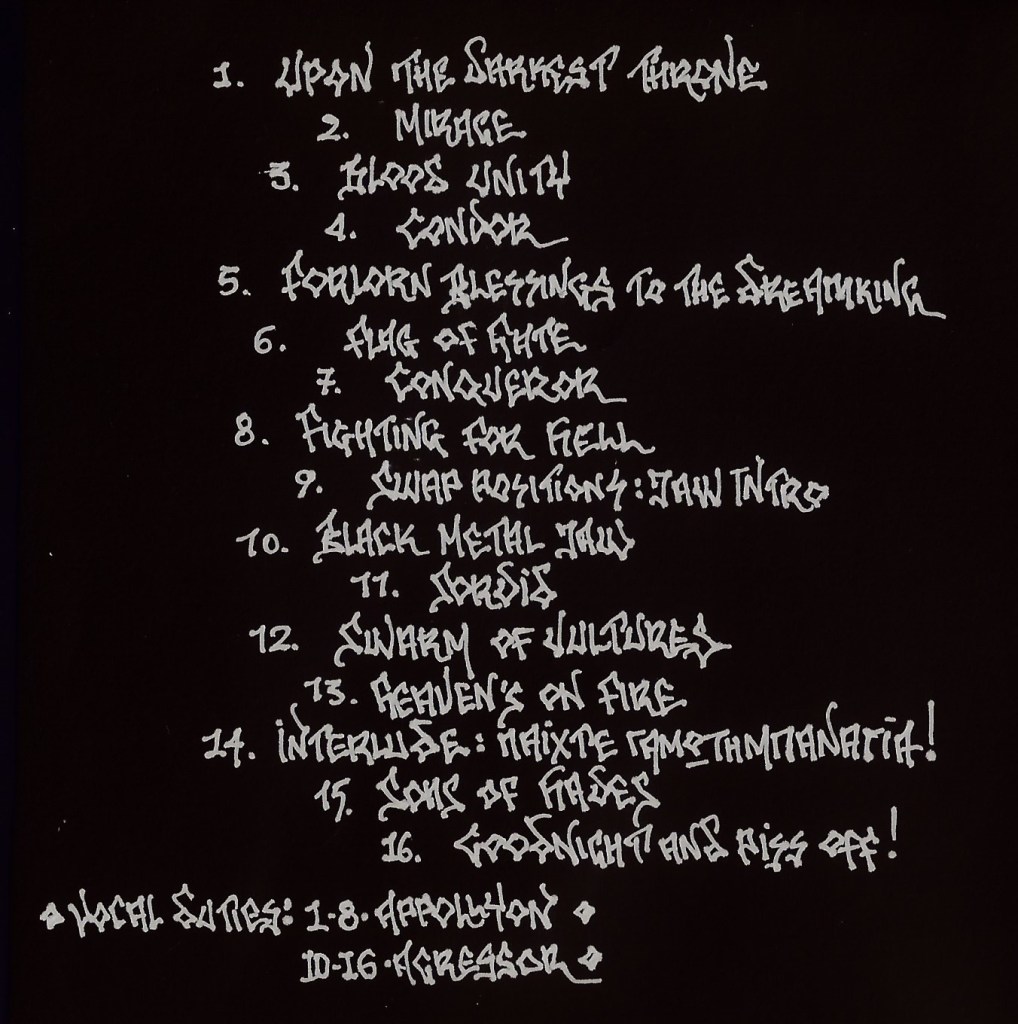 1. UPON THE DARKEST THRONE
2. MIRAGE
3. BLOOD UNITY
4. CONDOR
5. FORLORN BLESSINGS TO THE DREAMKING
6. FLAG OF HATE
7. CONQUEROR
8. FIGHTING FOR HELL
9. SWAP POSITIONS: JAW INTRO
10. BLACK METAL JAW
11. SORDID
12. SWARM OF VULTURES
13. HEAVEN'S ON FIRE
14. INTERLUDE: ΠΑΙΧΤΕ ΓΑΜΩΤΗΜΠΑΝΑΓΙΑ!
15. SONS OF HADES
16. GOODNIGHT AND PISS OFF!
VOCAL DUTIES: 1-8. APPOLLYON
10-16. AGRESSOR